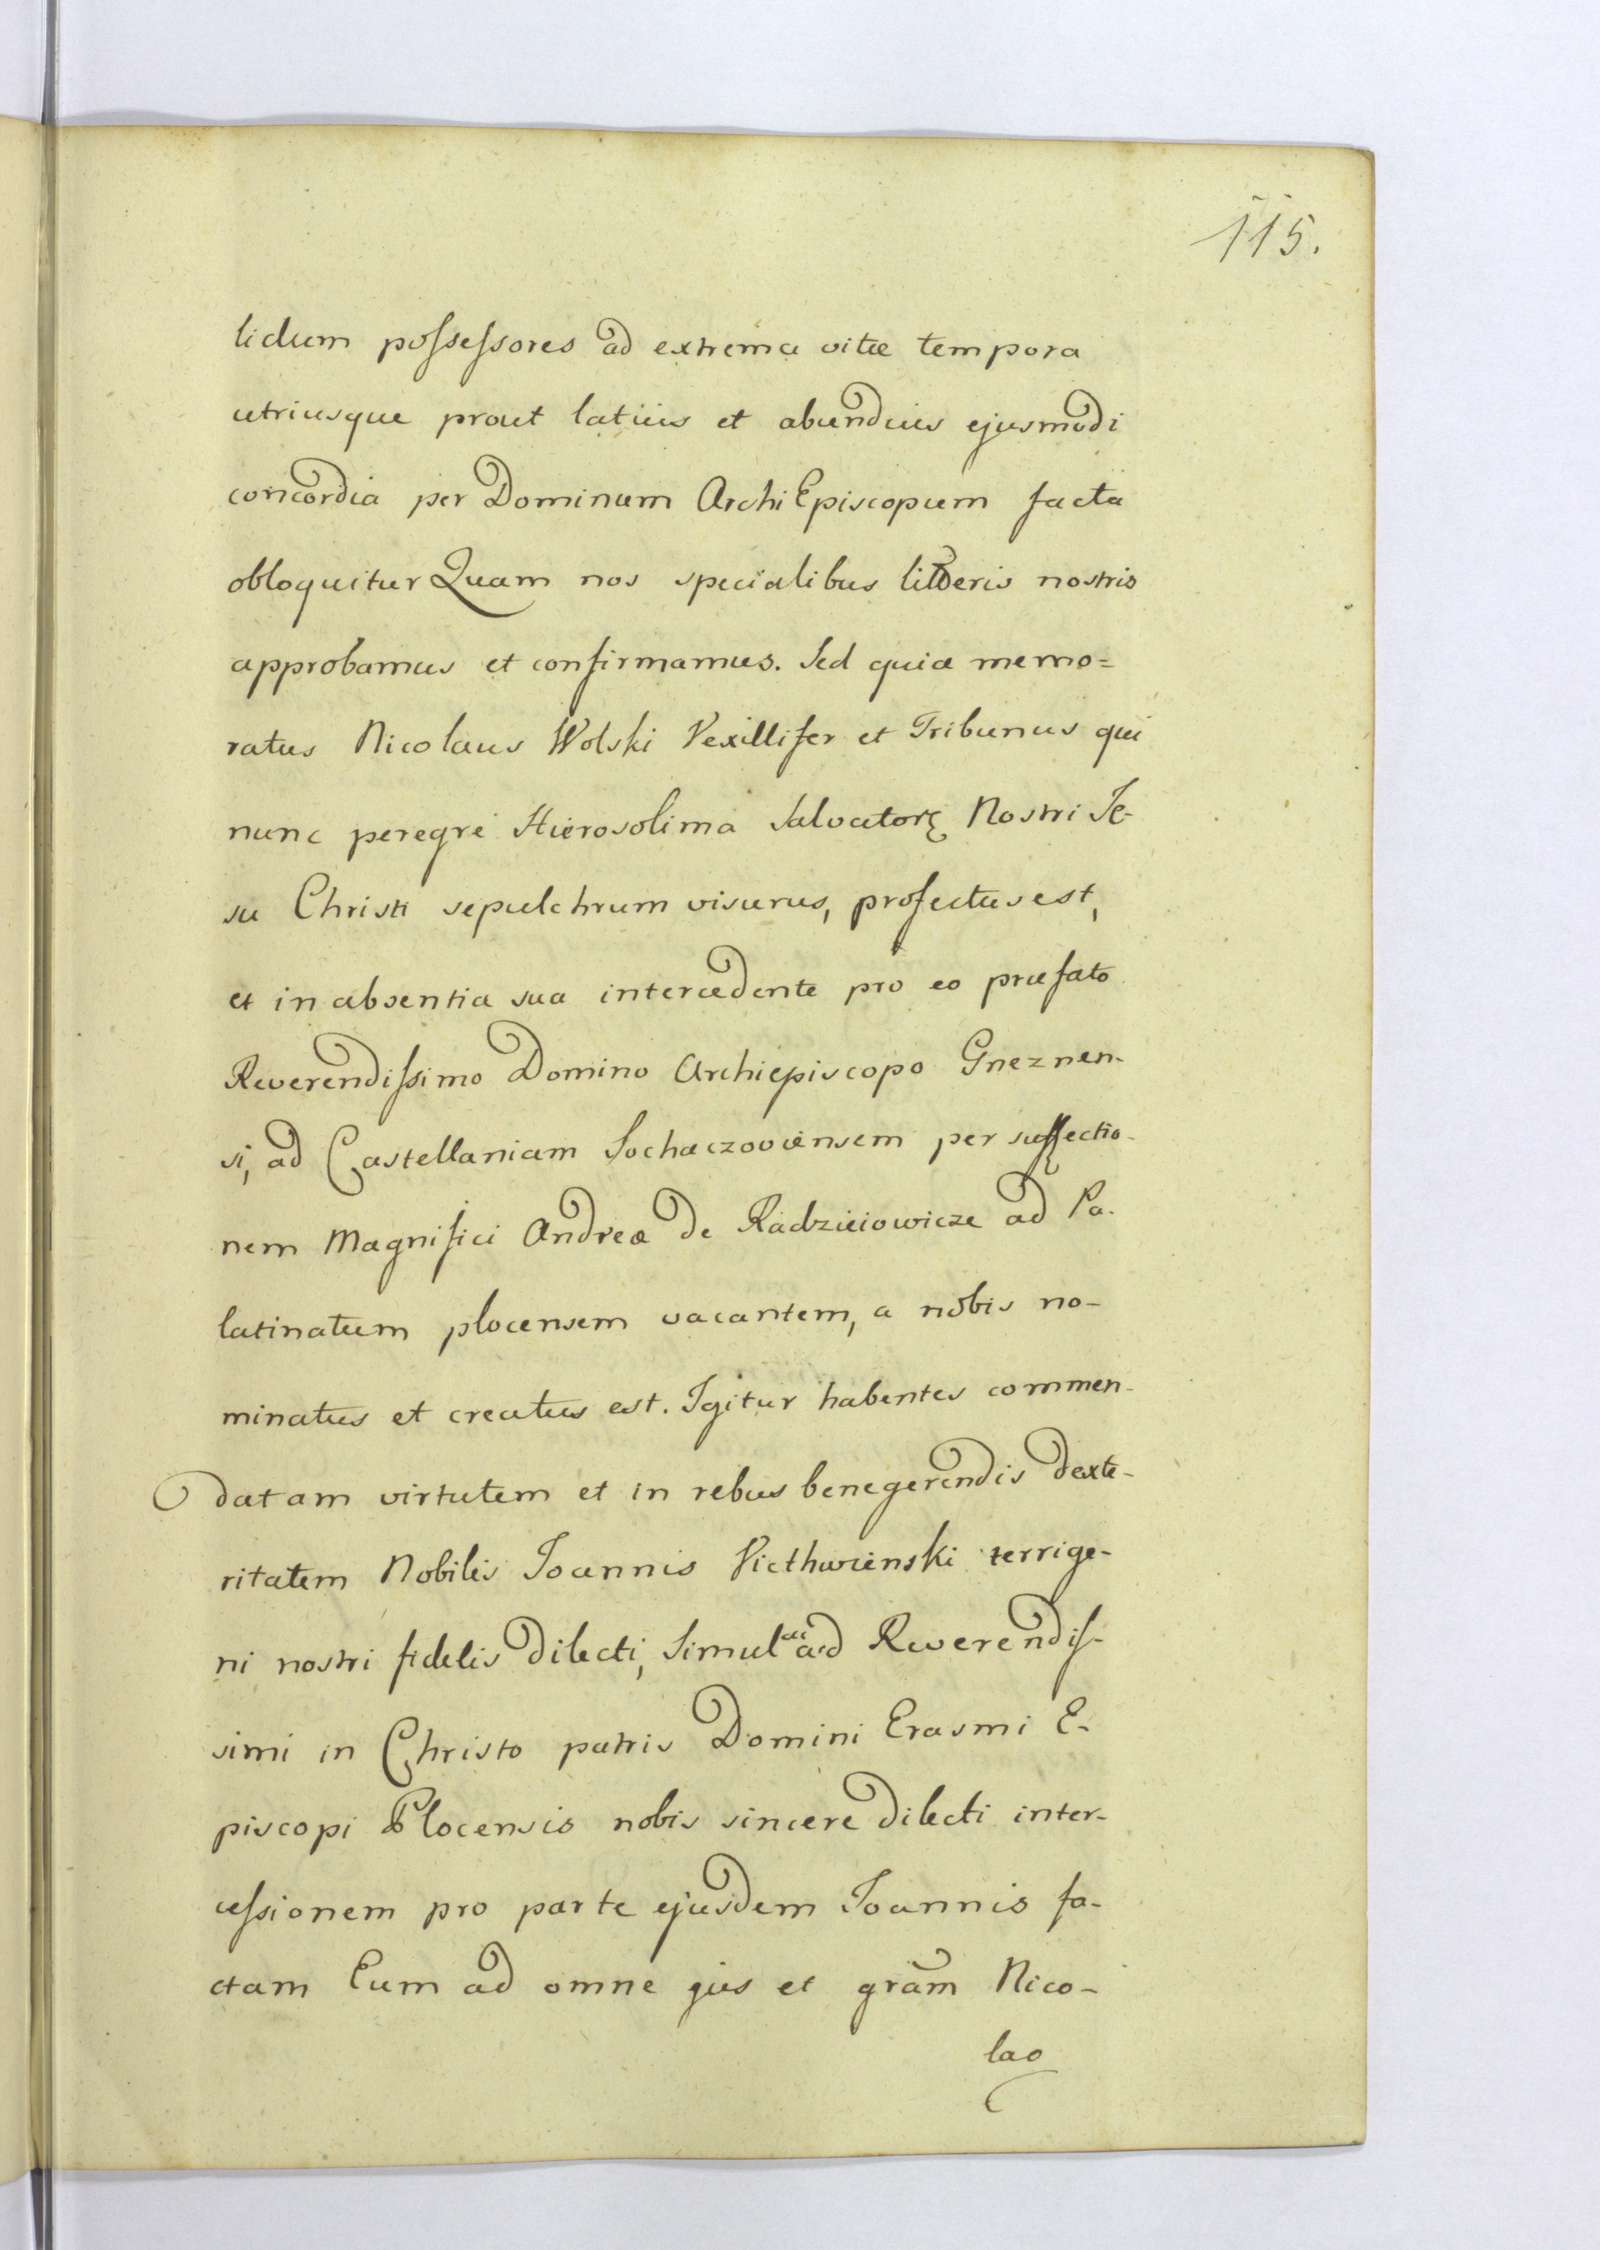 115.
lidum possessores ad extrema vitæ tempora
utriusque prout latius et abundius ejusmodi
concordia per Dominum ArchiEpiscopum facta
obloquitur Quam nos specialibus litteris nostris
approbamus et confirmamus. Sed quia memo=
ratus Nicolaus Wolski Vexillifer et Tribunus qui
nunc peregre Hierosolima Salvatorę Nostri Je-
su Christi sepulchrum visurus, profectus est,
et in absentia sua intercedente pro eo præfato
Reverendissimo Domino Archiepiscopo Gneznen-
si, ad Castellaniam Sochaczoviensem per suffectio-
nem Magnifici Andreæ de Radzieiowicze ad Pa-
latinatum plocensem vacantem, a nobis no-
minatus et creatus est. Igitur habentes commen-
datam virtutem et in rebus benegerendis dexte-
ritatem Nobilis Joannis Viethwienski terrige-
ni nostri fidelis dilecti, Simul ac ad Reverendis-
simi in Christo patris Domini Erasmi E-
piscopi Plocensis nobis sincere dilecti inter-
cessionem pro parte ejusdem Joannis fa-
ctam Eum ad omne jus et gram̃ Nico-
lao